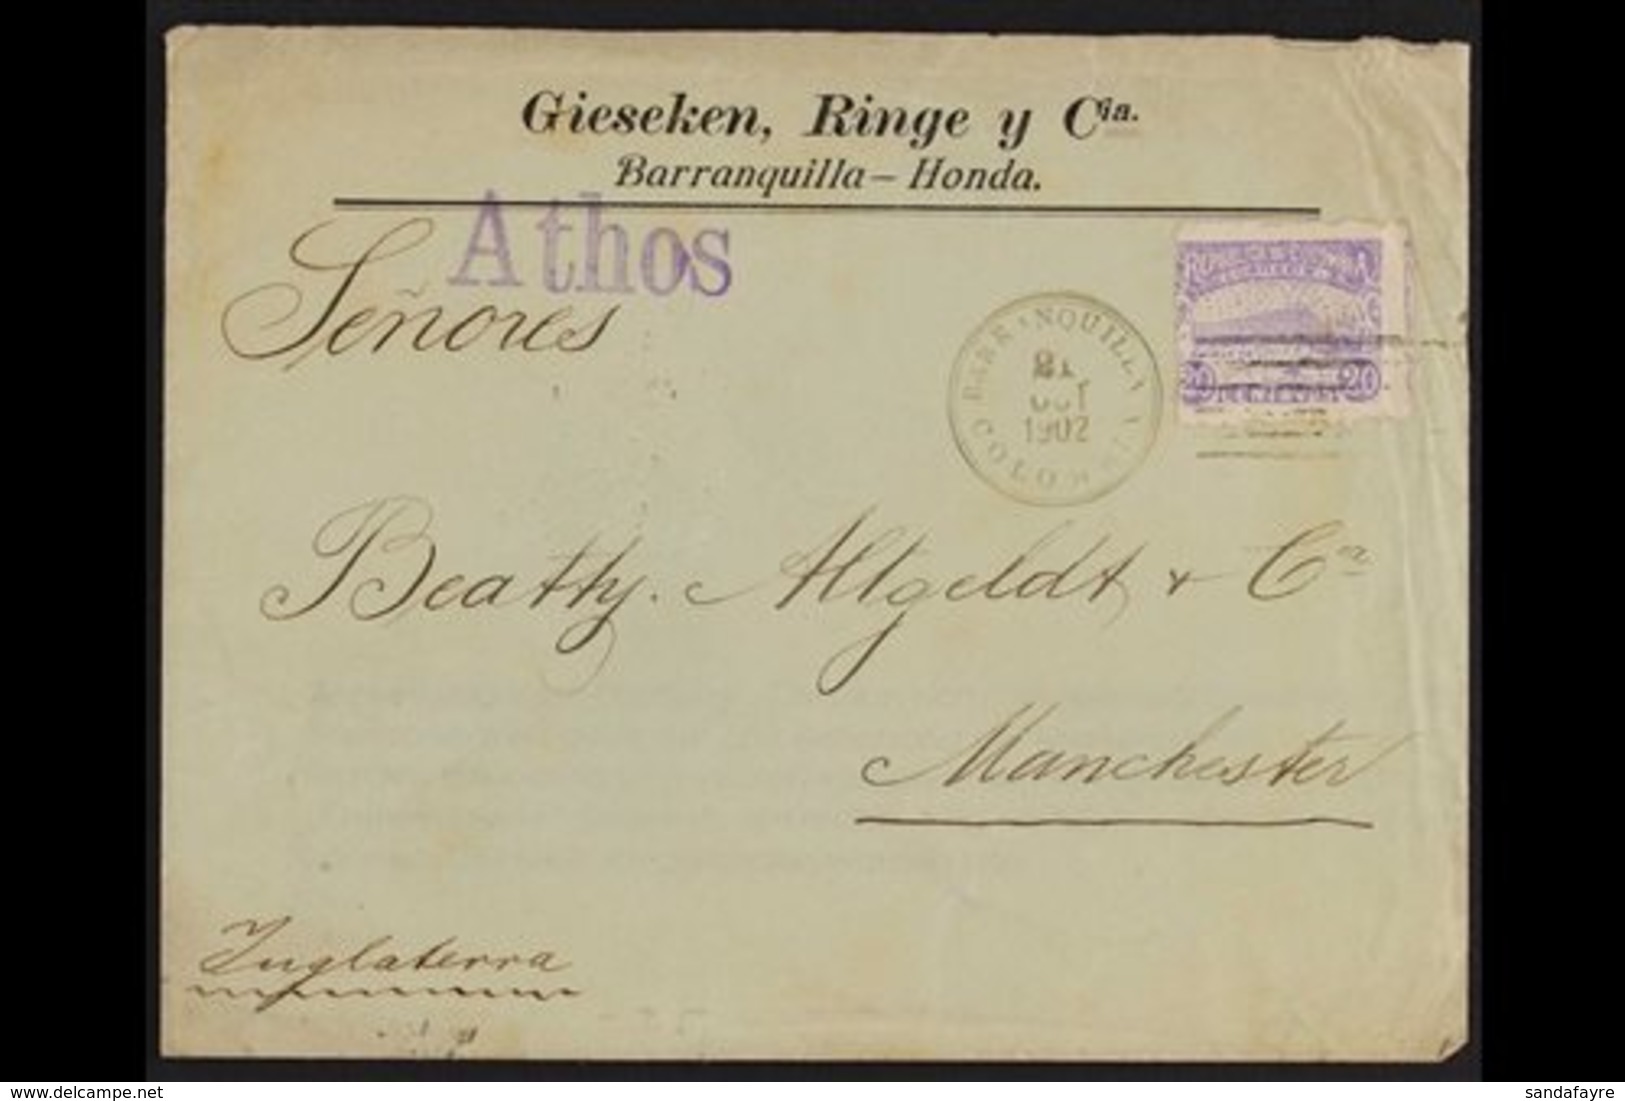 Gieseken, Ringe y Cia.
Barranquilla – Honda.
Athos
Señores
BARRANQUILLA
21
OCT
1902
COLOMBIA
20 20
Beatty. Altgeldt & Ca
Manchester
Inglaterra
delcampe.net
sandafayre